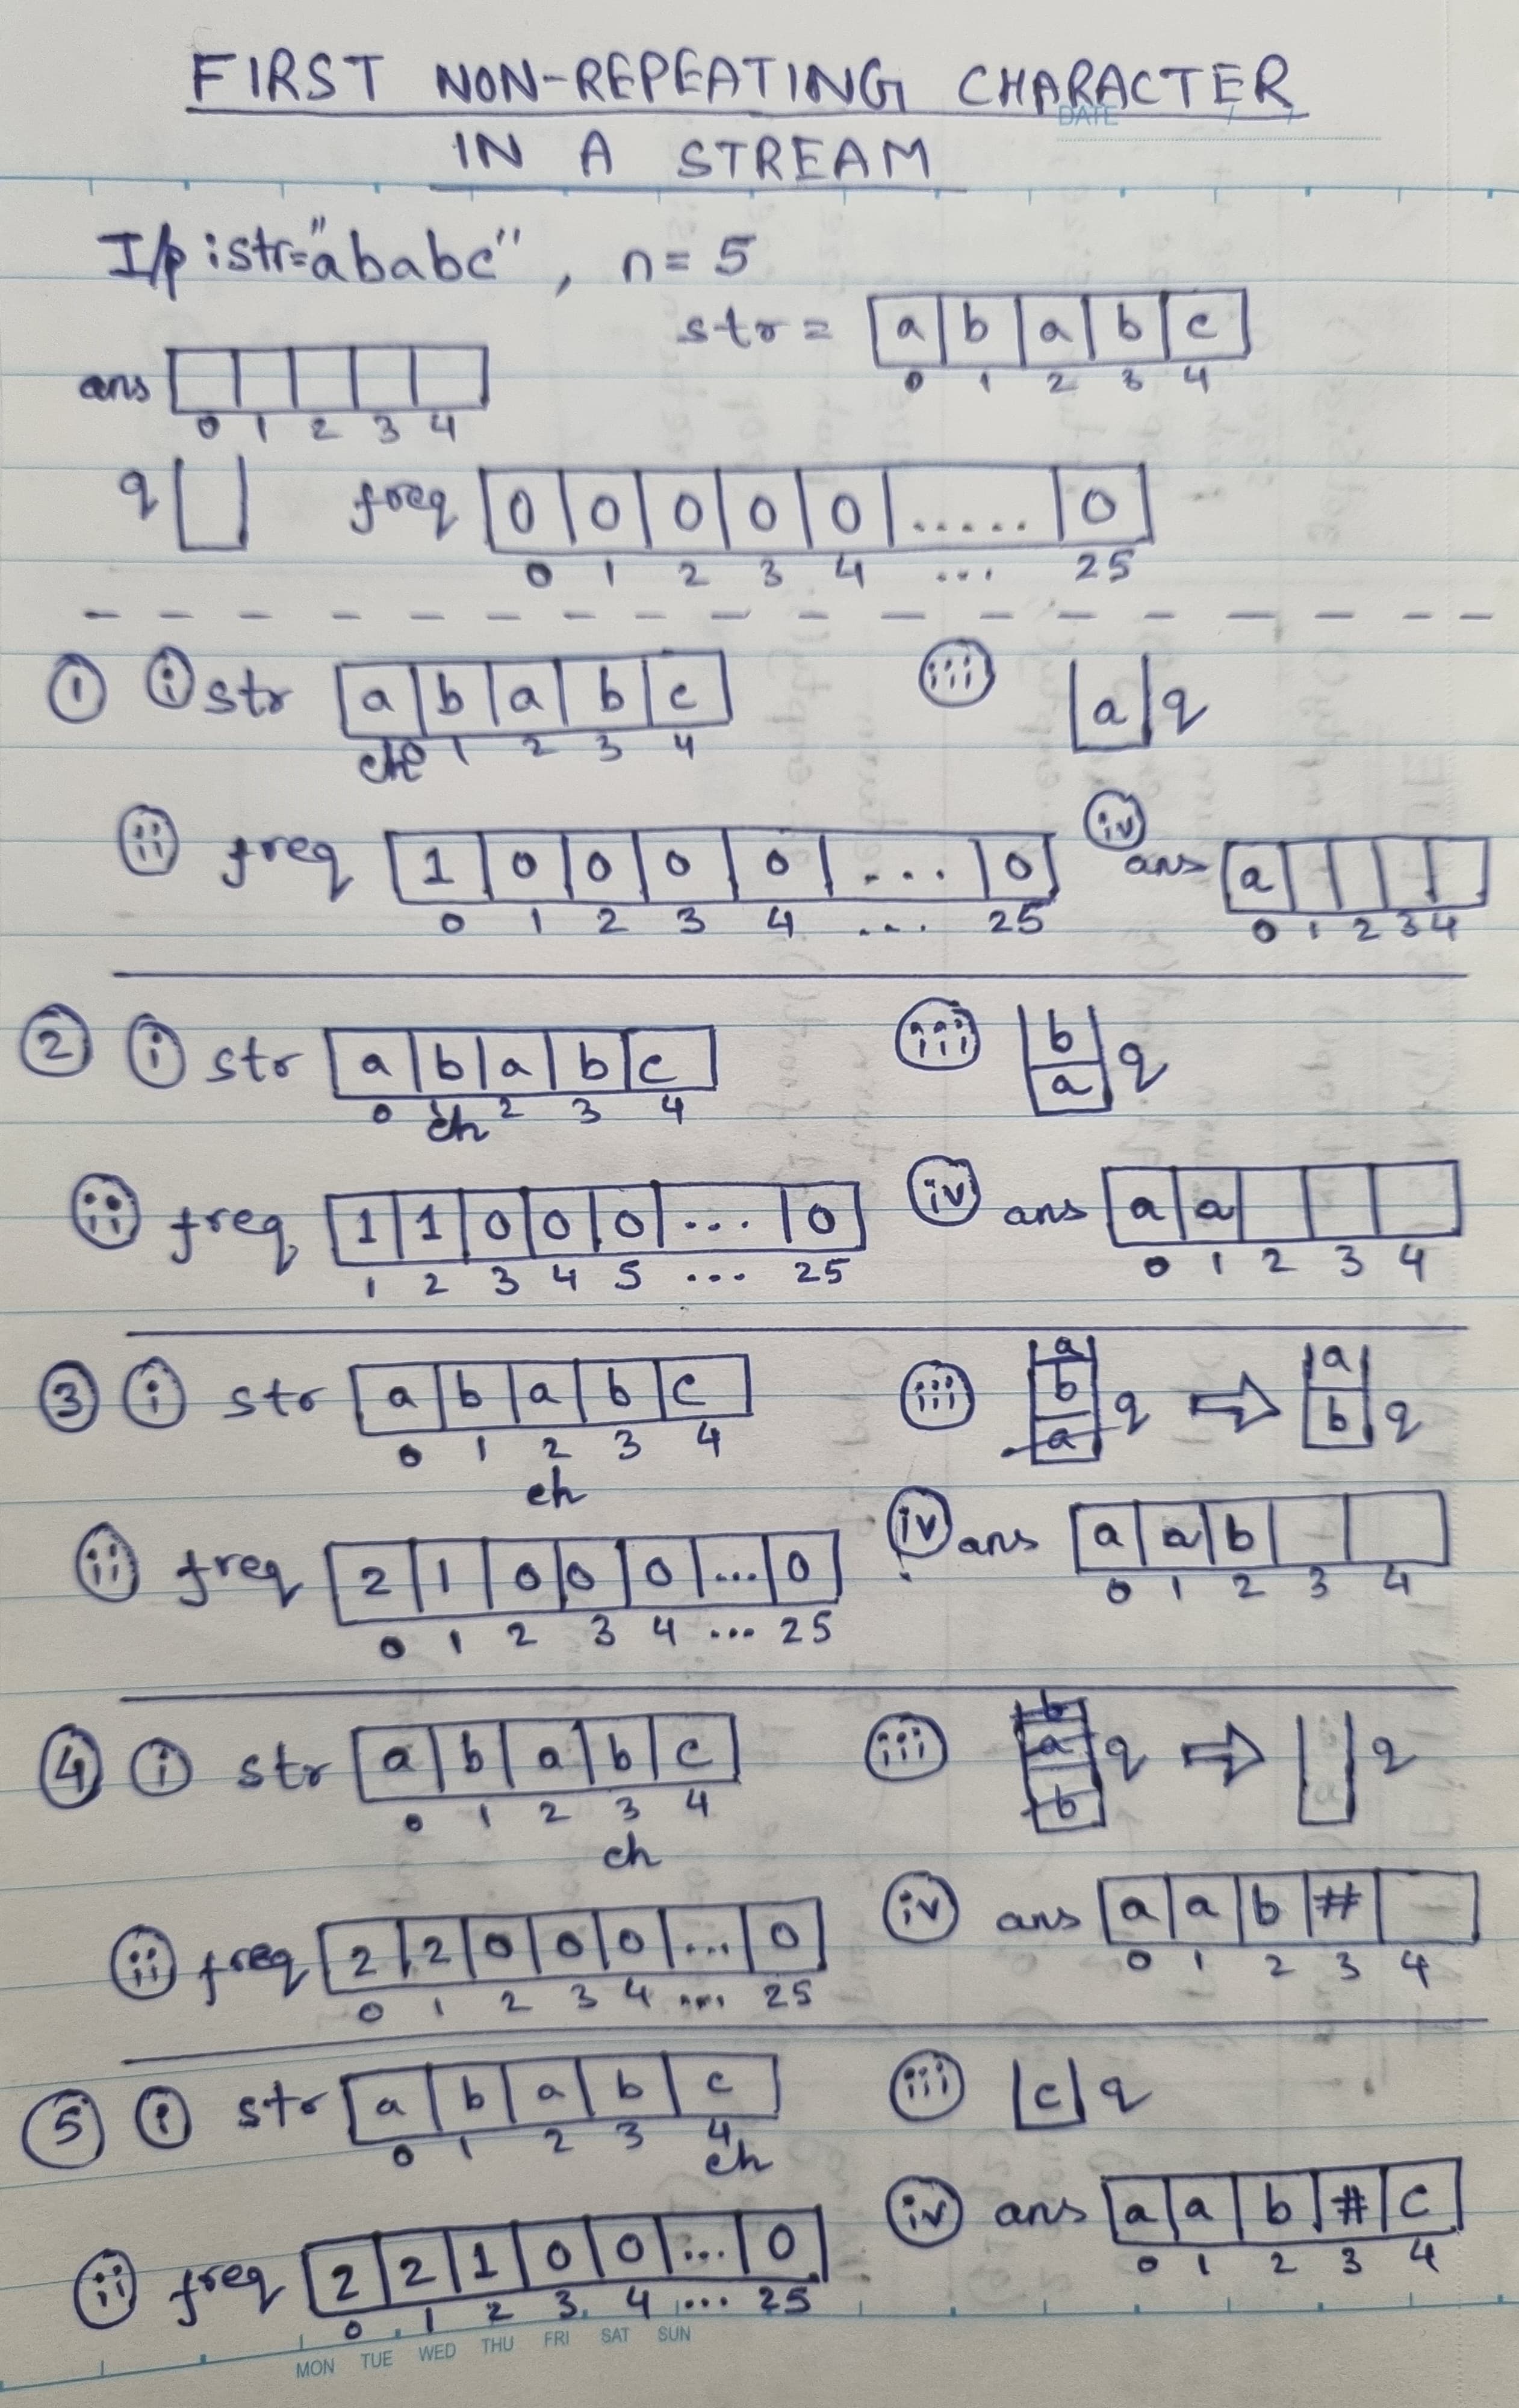 FIRST NON-REPEATING CHARACTER
DATE / /
IN A STREAM
I/p : str="ababc", n=5
str = a b a b c
0 1 2 3 4
ans
0 1 2 3 4
q freq 0 0 0 0 0 ..... 0
0 1 2 3 4 ... 25
1 i str a b a b c
0 1 2 3 4
ch
iii a q
ii freq 1 0 0 0 0 ... 0
0 1 2 3 4 ... 25
iv ans a
0 1 2 3 4
2 i str a b a b c
0 1 2 3 4
ch
iii b
a q
ii freq 1 1 0 0 0 ... 0
1 2 3 4 5 ... 25
iv ans a a
0 1 2 3 4
3 i str a b a b c
0 1 2 3 4
ch
iii a
b
a q ⇒ a
b q
ii freq 2 1 0 0 0 ... 0
0 1 2 3 4 ... 25
iv ans a a b
0 1 2 3 4
4 i str a b a b c
0 1 2 3 4
ch
iii b
a
b q ⇒ q
ii freq 2 2 0 0 0 ... 0
0 1 2 3 4 ... 25
iv ans a a b #
0 1 2 3 4
5 i str a b a b c
0 1 2 3 4
ch
iii c q
ii freq 2 2 1 0 0 ... 0
0 1 2 3 4 ... 25
iv ans a a b # c
0 1 2 3 4
MON TUE WED THU FRI SAT SUN